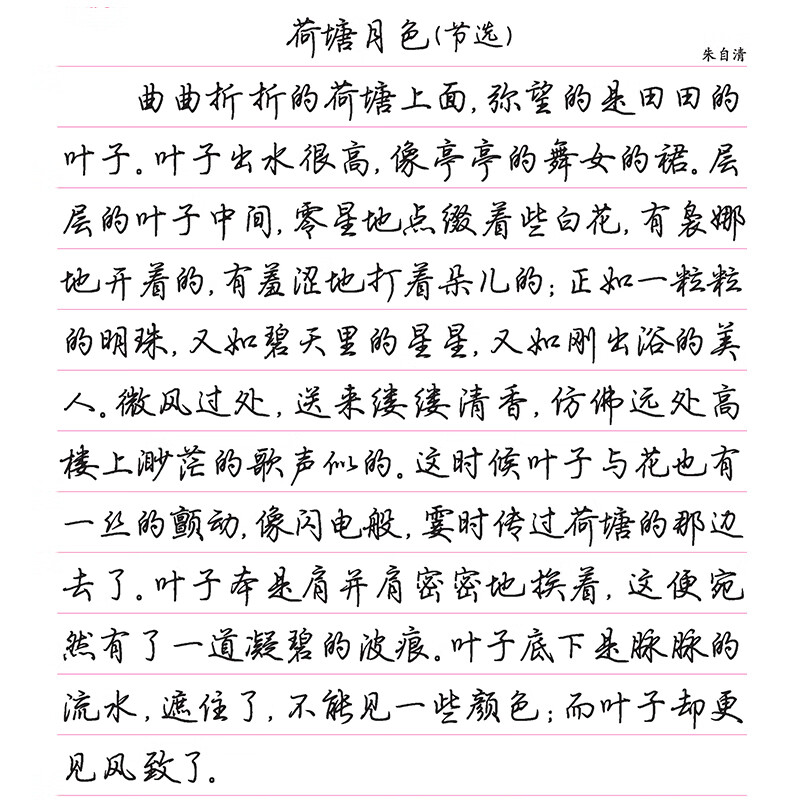 荷塘月色(节选)
朱自清
曲曲折折的荷塘上面,弥望的是田田的
叶子。叶子出水很高,像亭亭的舞女的裙。层
层的叶子中间,零星地点缀着些白花,有袅娜
地开着的,有羞涩地打着朵儿的;正如一粒粒
的明珠,又如碧天里的星星,又如刚出浴的美
人。微风过处,送来缕缕清香,仿佛远处高
楼上渺茫的歌声似的。这时候叶子与花也有
一丝的颤动,像闪电般,霎时传过荷塘的那边
去了。叶子本是肩并肩密密地挨着,这便宛
然有了一道凝碧的波痕。叶子底下是脉脉的
流水,遮住了,不能见一些颜色;而叶子却更
见风致了。